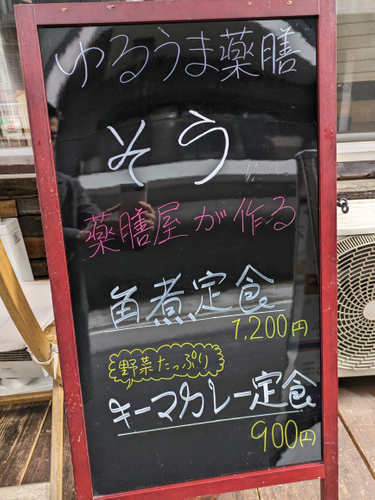 ゆるうま薬膳
そう
薬膳屋が作る
角煮定食
1,200円
野菜たっぷり
キーマカレー定食
900円